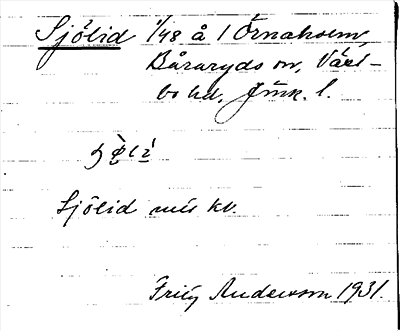 Sjölid 1/48 å 1 Örnaholm,
Båraryds sn, Väst-
bo hd, Jönk. l.
Sjölid mis kv.
Fritz Anderson 1931.